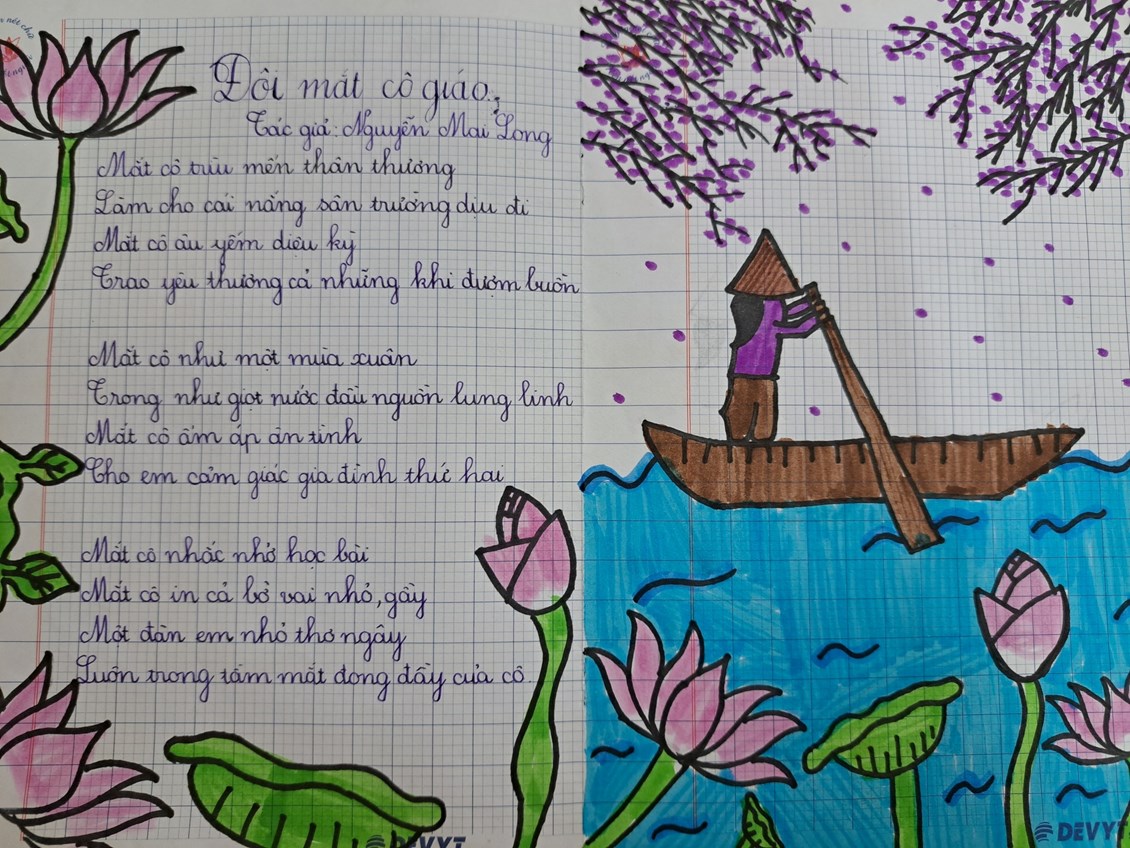 Đôi mắt cô giáo.
Tác giả: Nguyễn Mai Long
Mắt cô trìu mến thân thương
Làm cho cái nắng sân trường dịu đi
Mắt cô âu yếm diệu kỳ
Trao yêu thương cả những khi đượm buồn
Mắt cô như một mùa xuân
Trong như giọt nước đầu nguồn lung linh
Mắt cô ấm áp ân tình
Cho em cảm giác gia đình thứ hai
Mắt cô nhắc nhở học bài
Mắt cô in cả bờ vai nhỏ, gầy
Một đàn em nhỏ thơ ngây
Luôn trong tầm mắt đong đầy của cô.
DEVYT
DEVYT